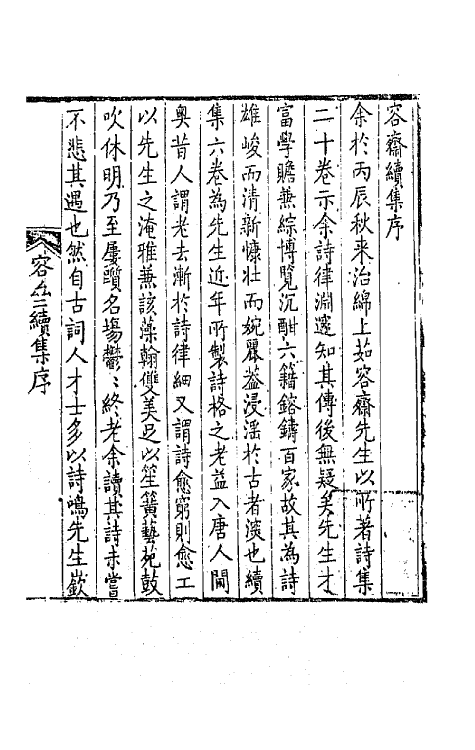 容齋續集序
余於丙辰秋来治綿上茹容齋先生以所著詩集
二十卷示余詩律淵邃知其傳後無疑矣先生才
富學贍兼綜博覽沉酣六籍鎔鑄百家故其為詩
雄峻而清新慷壮而婉麗葢浸淫於古者湥也續
集六卷為先生近年所製詩格之老益入唐人閫
奥昔人謂老去漸於詩律細又謂詩愈窮則愈工
以先生之淹雅兼該藻翰雙美足以笙簧藝苑鼓
吹休明乃至屢躓名場鬱〻終老余讀其詩未嘗
不悲其遇也然自古詞人才士多以詩鳴先生嶔
續集序